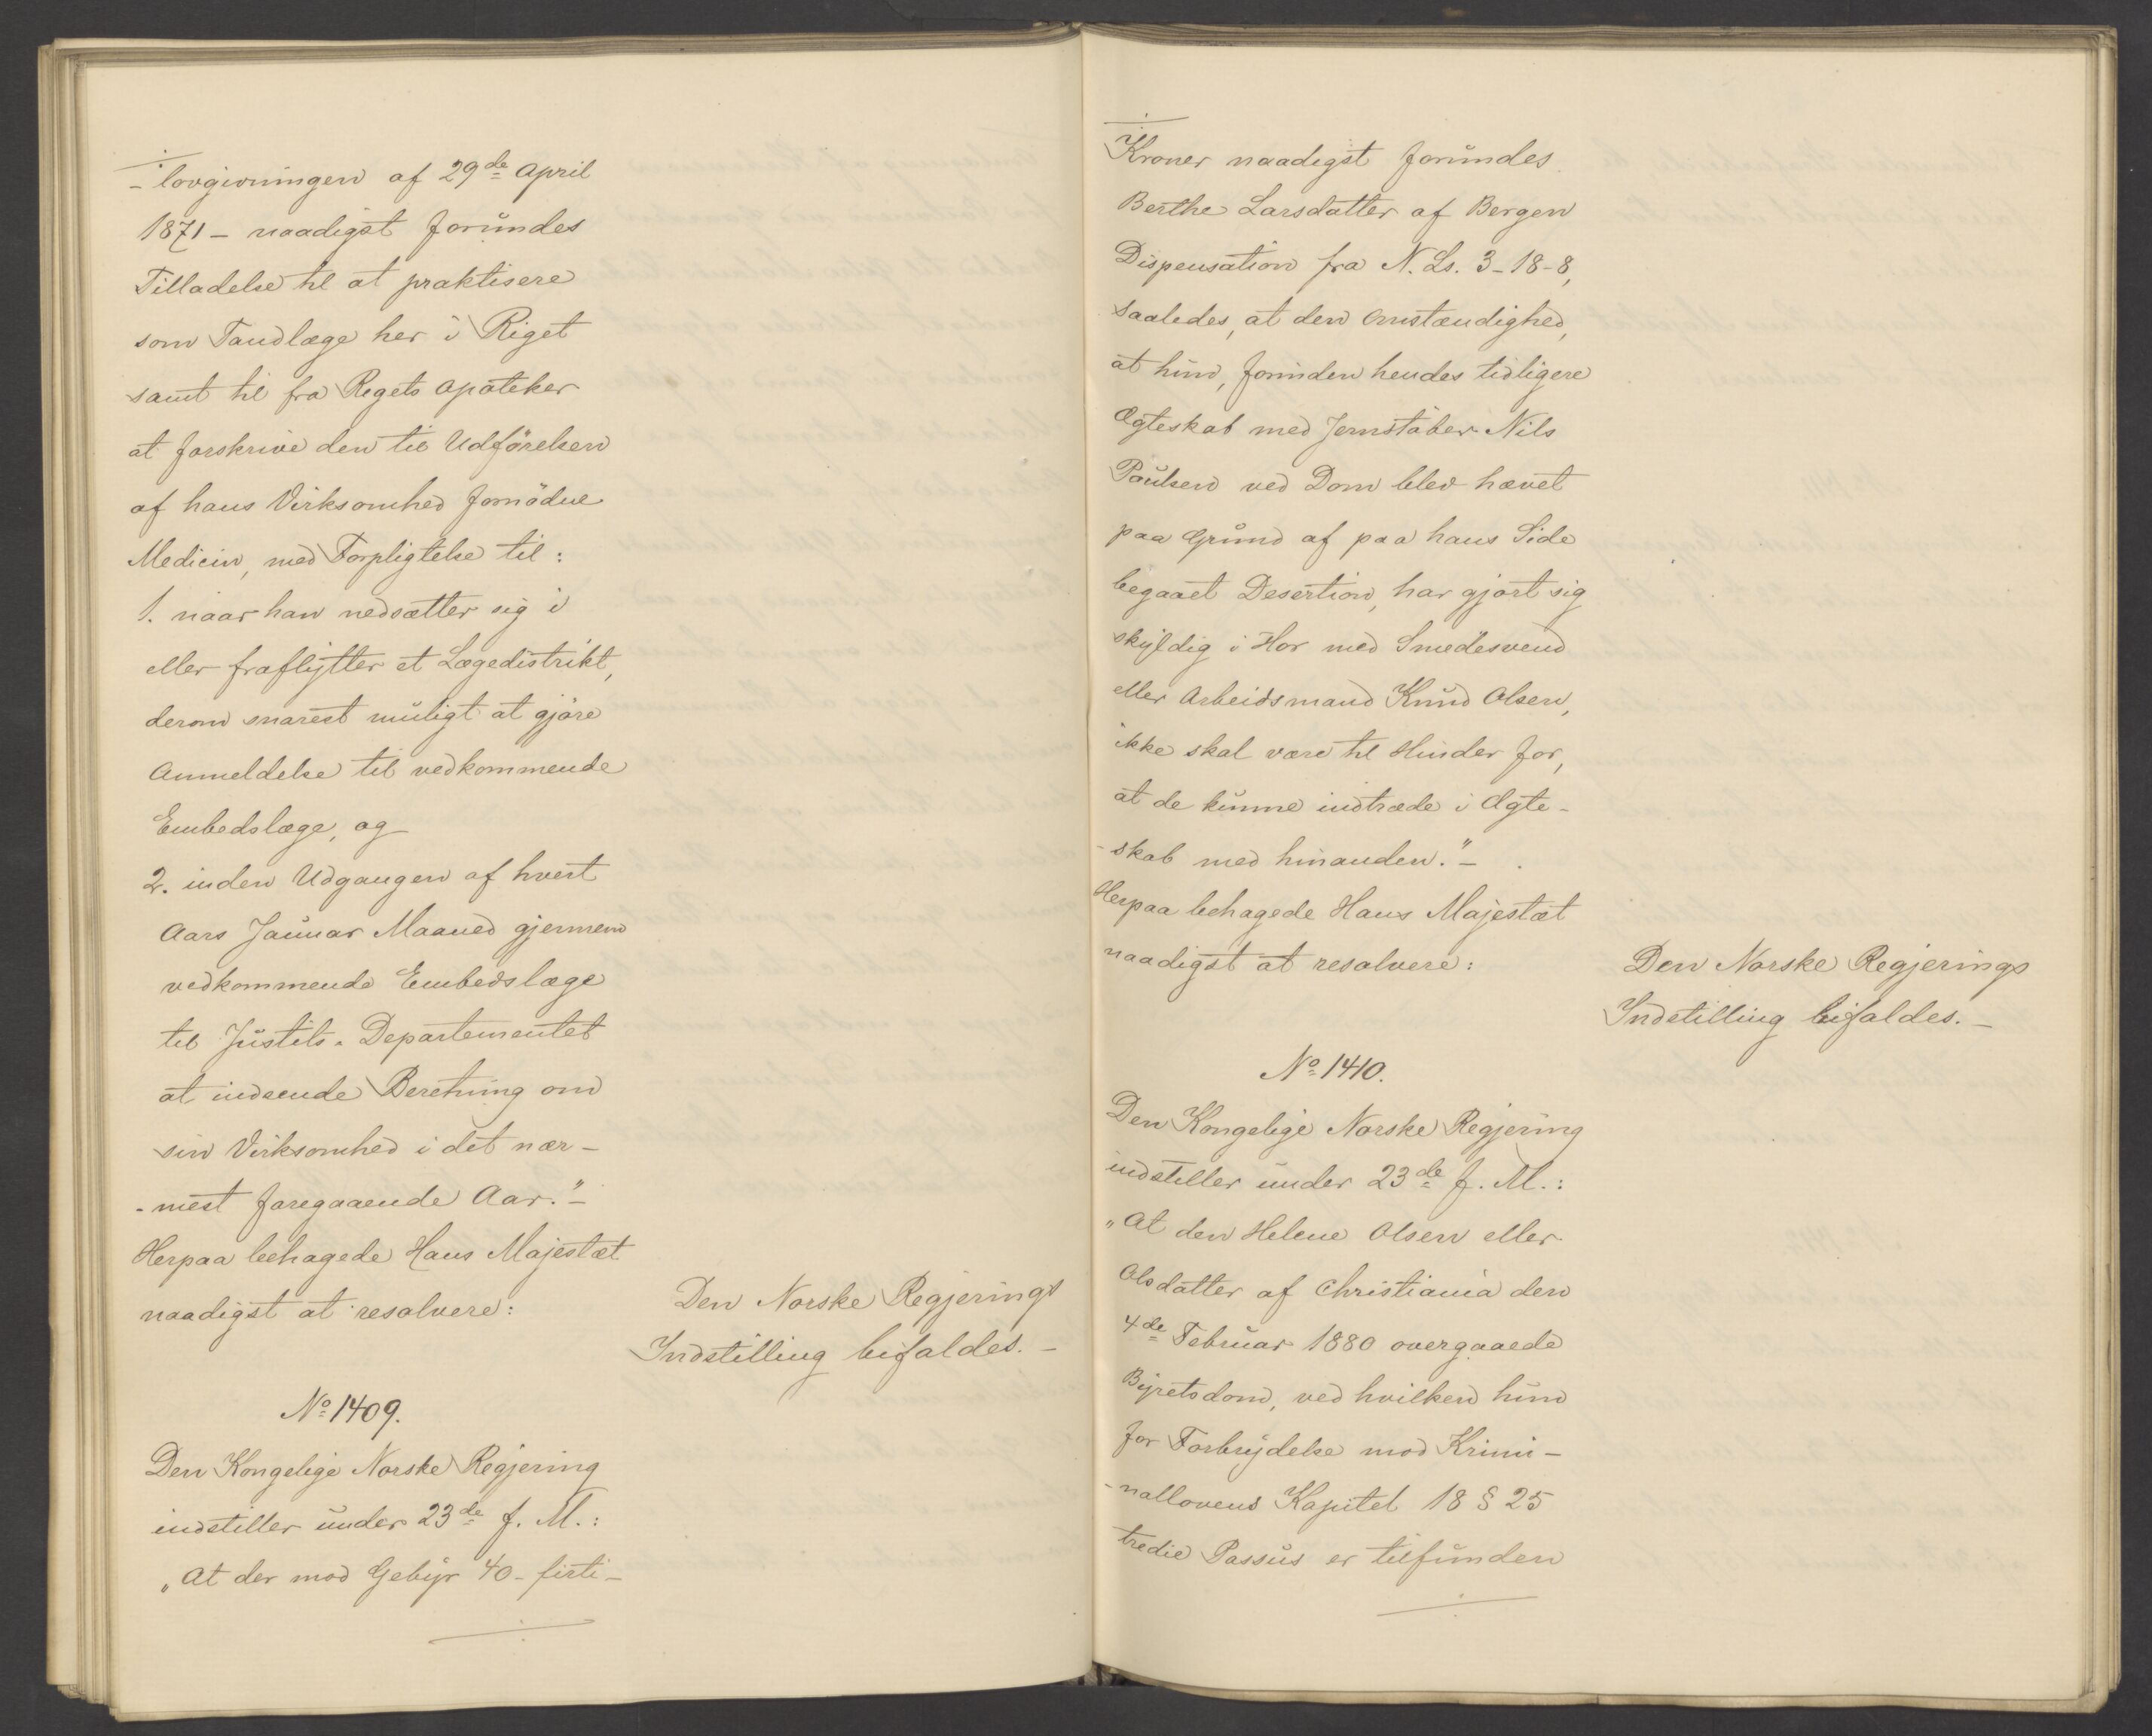 -lovgivningen af 29de April
1871 - naadigst forundes
Tilladelse til at praktisere
som Tandlæge her i Riget
samt til fra Rigets Apoteker
at forskrive den til Udförelsen
af hans Virksomhed fornödne
Medicin, med Forpligtelse til:
1. naar han nedsætter sig i
eller fraflytter et Lægedistrikt,
derom snarest muligt at gjöre
Anmeldelse til vedkommende
Embedslæge, og
2. inden Udgangen af hvert
Aars Januar Maaned gjennem
vedkommende Embedslæge
til Justits-Departementet
at indsende Beretning om
sin Virksomhed i det nær-
-mest foregaaende Aar."-
Herpaa behagede Hans Majestæt
naadigst at resolvere:
Den Norske Regjerings
Indstilling bifaldes. -
No 1409.
Den Kongelige Norske Regjering
indstiller under 23de f. M.:
"At der mod Gebyr 40 - firti -
Kroner naadigst forundes
Berthe Larsdatter af Bergen
Dispensation fra N. Ls. 3-18-8,
saaledes, at den Omstændighed,
at hun, forinden hendes tidligere
Ægteskab med Jernstöber Nils
Paulsen ved Dom blev hævet
paa Grund af paa hans Side
begaaet Desertion, har gjort sig
skyldig i Hor med Smedesvend
eller Arbeidsmand Knud Olsen,
ikke skal være til Hinder for,
at de kunne indtræde i Ægte-
-skab med hinanden."-
Herpaa behagede Hans Majestæt
naadigst at resolvere:
Den Norske Regjerings
Indstilling bifaldes. -
No 1410.
Den Kongelige Norske Regjering
indstiller under 23de f. M.:
"At den Helene Olsen eller
Olsdatter af Christiania den
4de Februar 1880 overgaaede
Byretsdom, ved hvilken hun
for Forbrydelse mod Krimi-
-nallovens Kapitel 18 § 25
tredie Passus er tilfunden